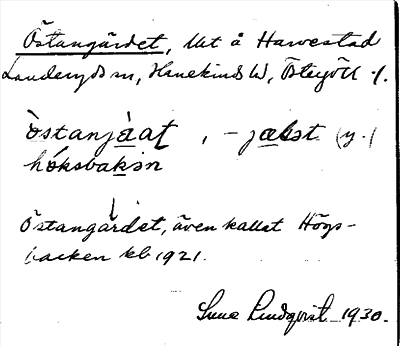 Östangärdet, Utt å Harvestad
Landeryds sn, Hanekinds hd, Östergötl l.
östanjàat̠ , – jälst (y.)
hóksbakan
Östangärdet, även kallat Högs-
backen kb 1921.
Sune Lindqvist 1930.